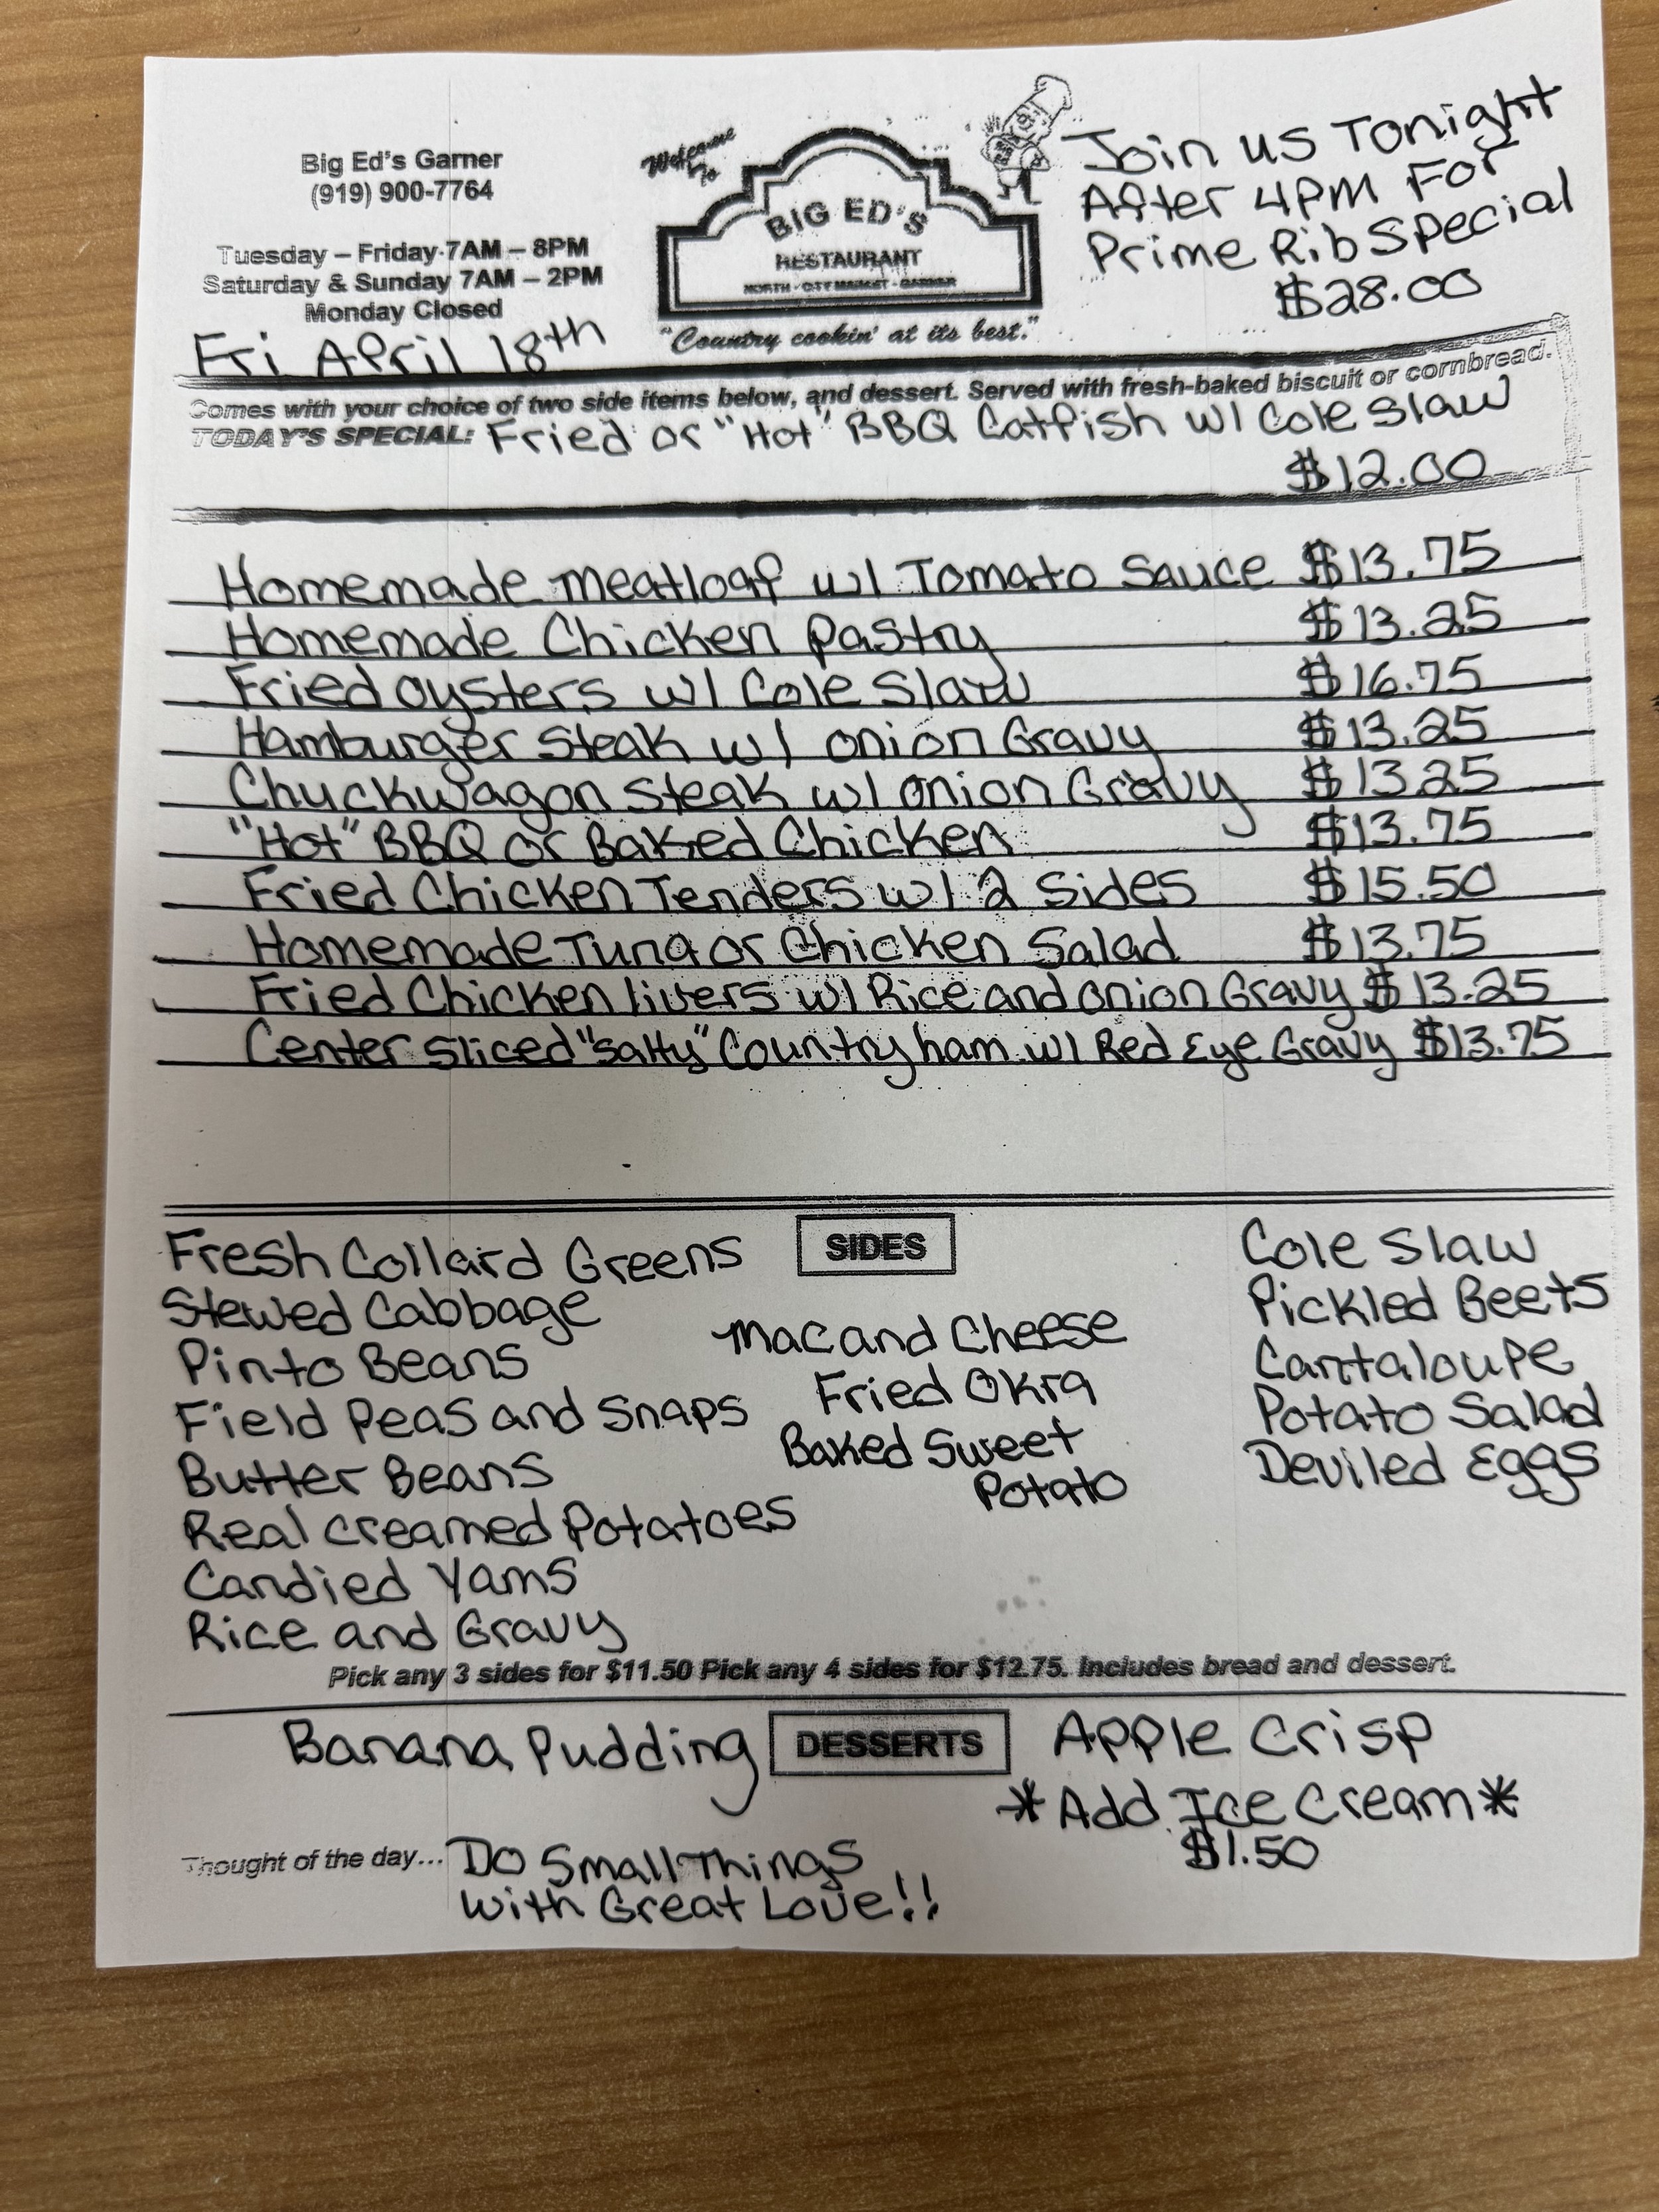 Big Ed's Garner
(919) 900-7764
Tuesday – Friday 7AM – 8PM
Saturday & Sunday 7AM – 2PM
Monday Closed
Fri April 18th
Welcome To
BIG ED'S
RESTAURANT
NORTH - CITY MARKET - GARNER
"Country cookin' at its best."
Join us Tonight
After 4PM For
Prime Rib Special
$28.00
Comes with your choice of two side items below, and dessert. Served with fresh-baked biscuit or cornbread.
TODAY'S SPECIAL: Fried or "Hot" BBQ Catfish w/ Cole Slaw
$12.00
Homemade Meatloaf w/ Tomato Sauce $13.75
Homemade Chicken Pastry $13.25
Fried Oysters w/ Cole Slaw $16.75
Hamburger Steak w/ Onion Gravy $13.25
Chuckwagon Steak w/ Onion Gravy $13.25
"Hot" BBQ or Baked Chicken $13.75
Fried Chicken Tenders w/ 2 Sides $15.50
Homemade Tuna or Chicken Salad $13.75
Fried Chicken livers w/ Rice and Onion Gravy $13.25
Center Sliced "Salty" Country ham w/ Red Eye Gravy $13.75
SIDES
Fresh Collard Greens
Stewed Cabbage
Pinto Beans
Field Peas and Snaps
Butter Beans
Real Creamed Potatoes
Candied Yams
Rice and Gravy
Mac and Cheese
Fried Okra
Baked Sweet
Potato
Cole Slaw
Pickled Beets
Cantaloupe
Potato Salad
Deviled Eggs
Pick any 3 sides for $11.50 Pick any 4 sides for $12.75. Includes bread and dessert.
Banana Pudding
DESSERTS
Apple Crisp
*Add Ice Cream*
$1.50
Thought of the day... Do Small Things
With Great Love!!